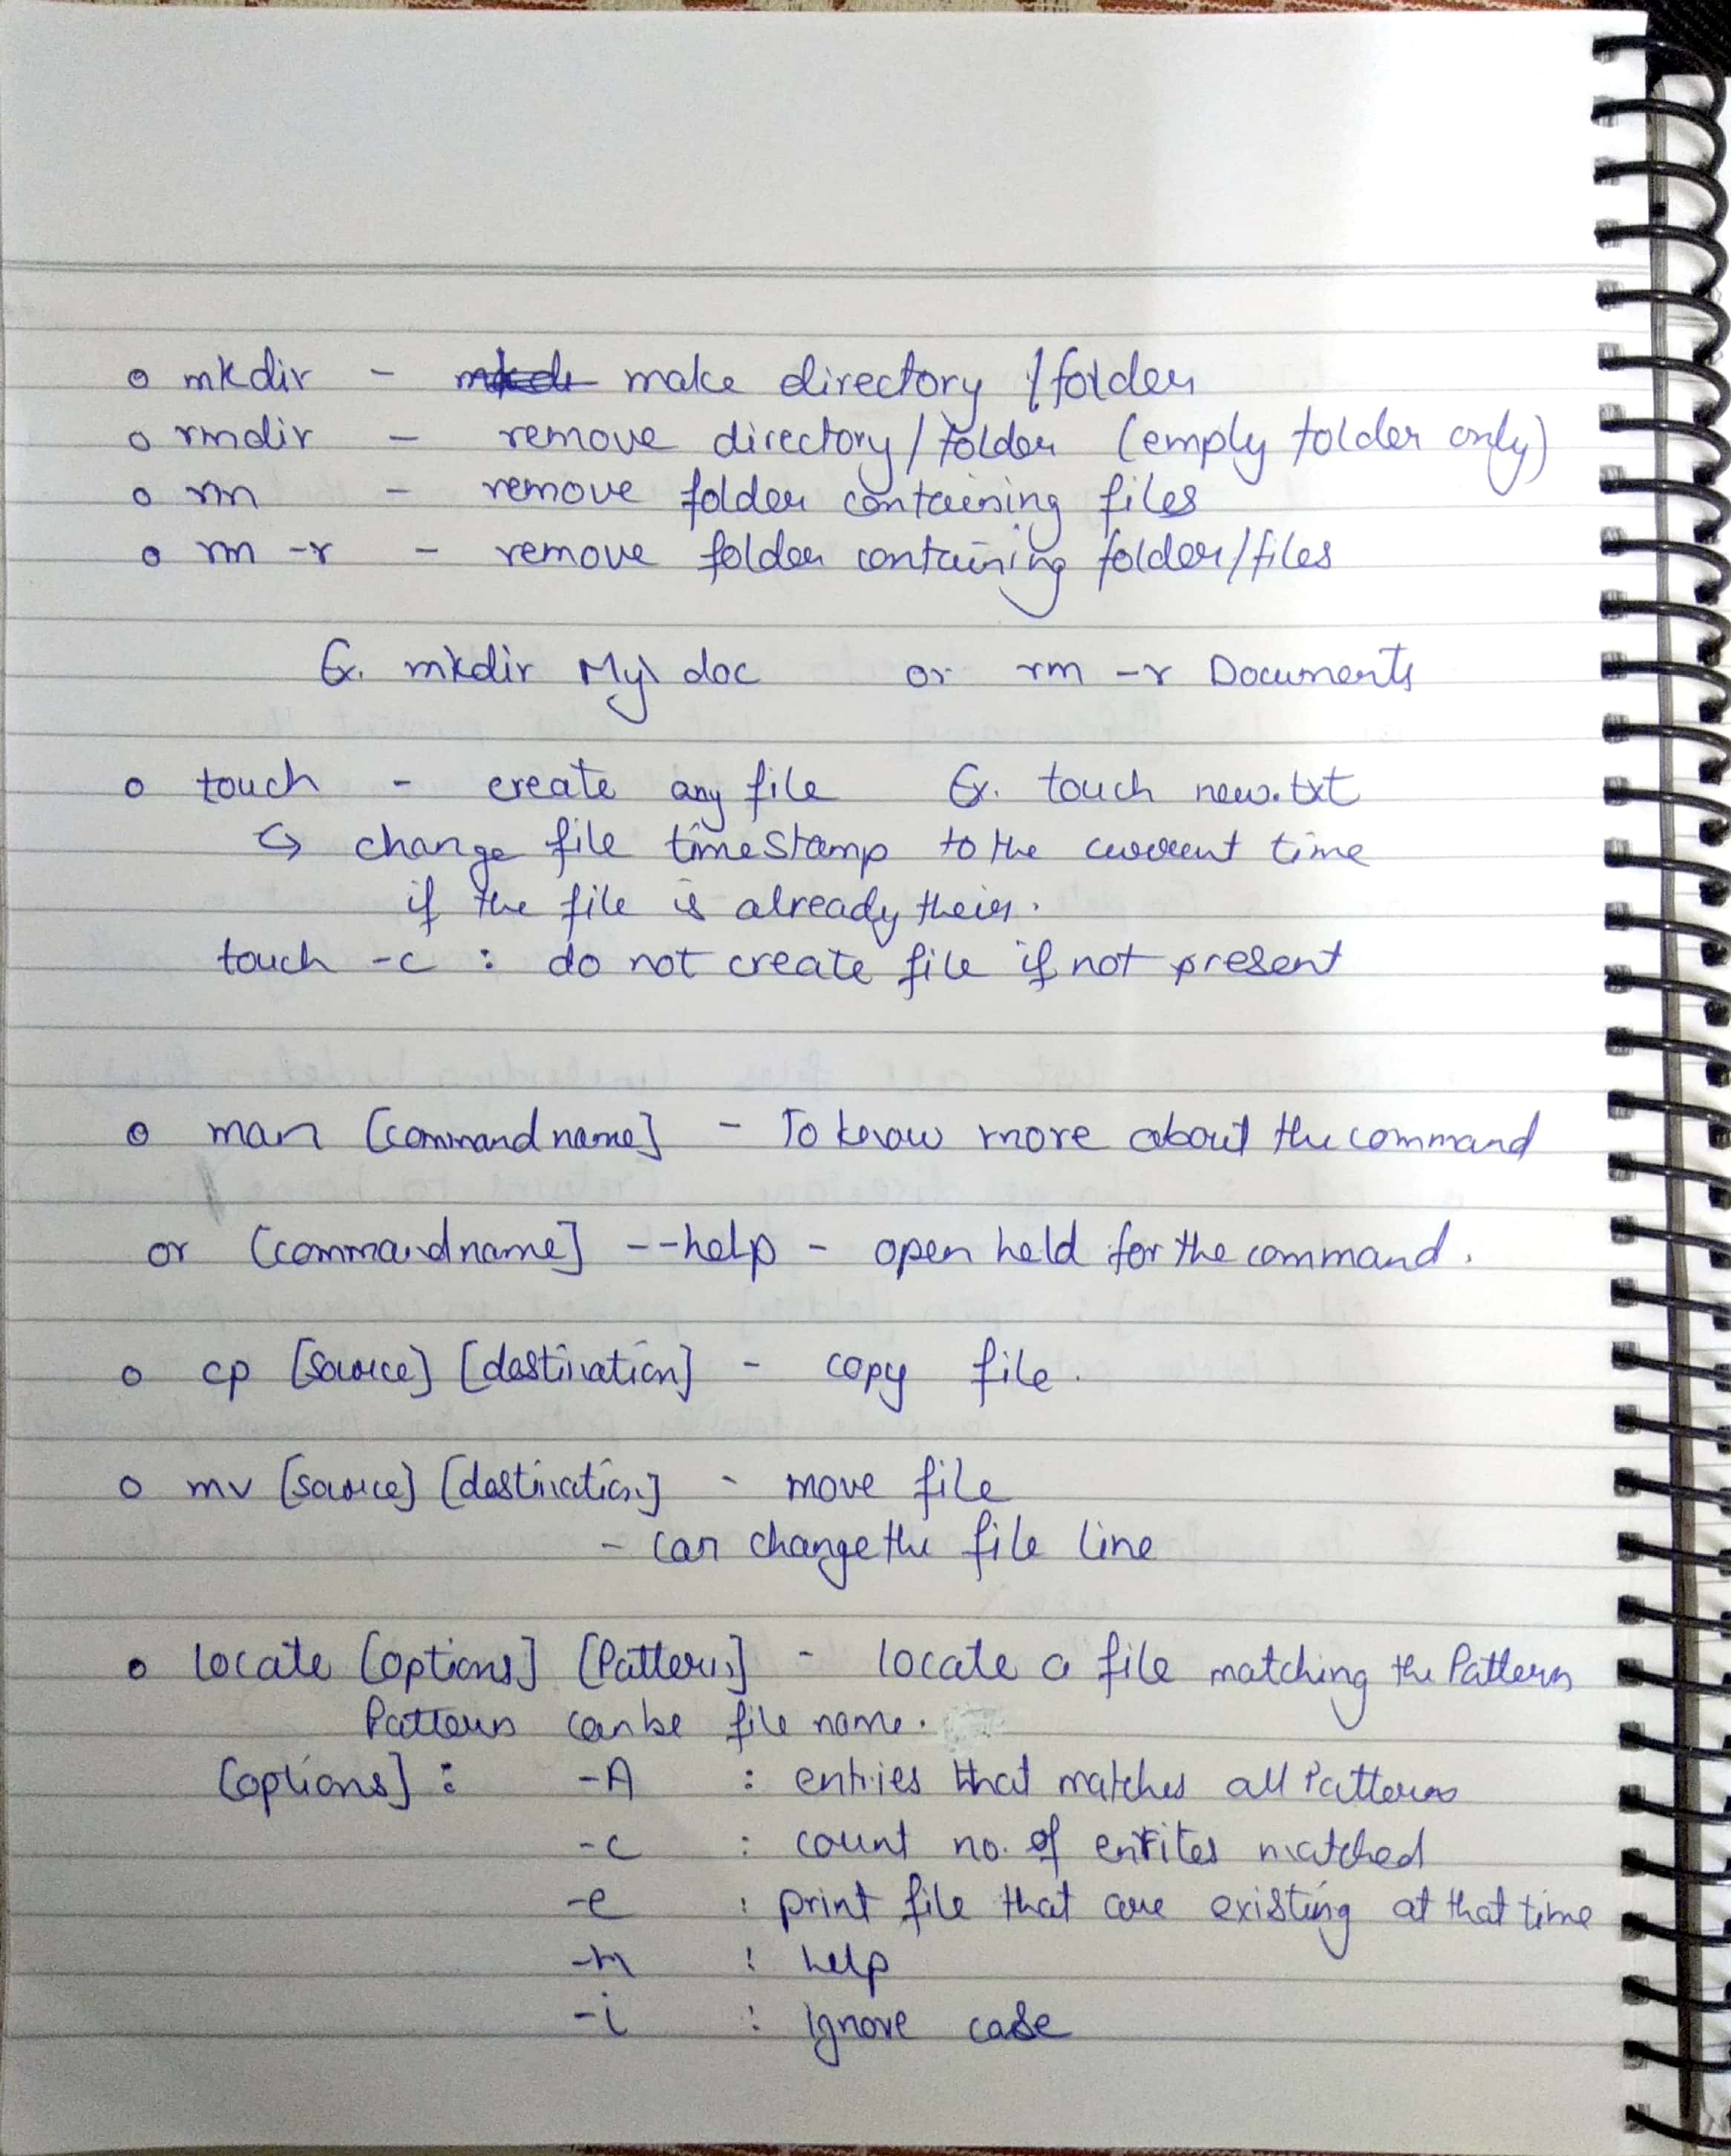 o mkdir - make directory / folder
o rmdir - remove directory / folder (emply folder only)
o rm - remove folder containing files
o rm -r - remove folder containing folder/files
Ex. mkdir My\ doc or rm -r Documents
o touch - create any file Ex. touch new.txt
↳ change file timestamp to the current time
if the file is already their.
touch -c : do not create file if not present
o man [command name] - To know more about the command
or [command name] --help - open held for the command.
o cp [source] [destination] - copy file.
o mv [source] [destination] - move file
- can change the file line
o locate [options] [Pattern] - locate a file matching the Pattern
Pattern can be file name.
[options] : -A : entries that matches all Patterns
-c : count no. of entites matched
-e : print file that are existing at that time
-h : help
-i : ignore case